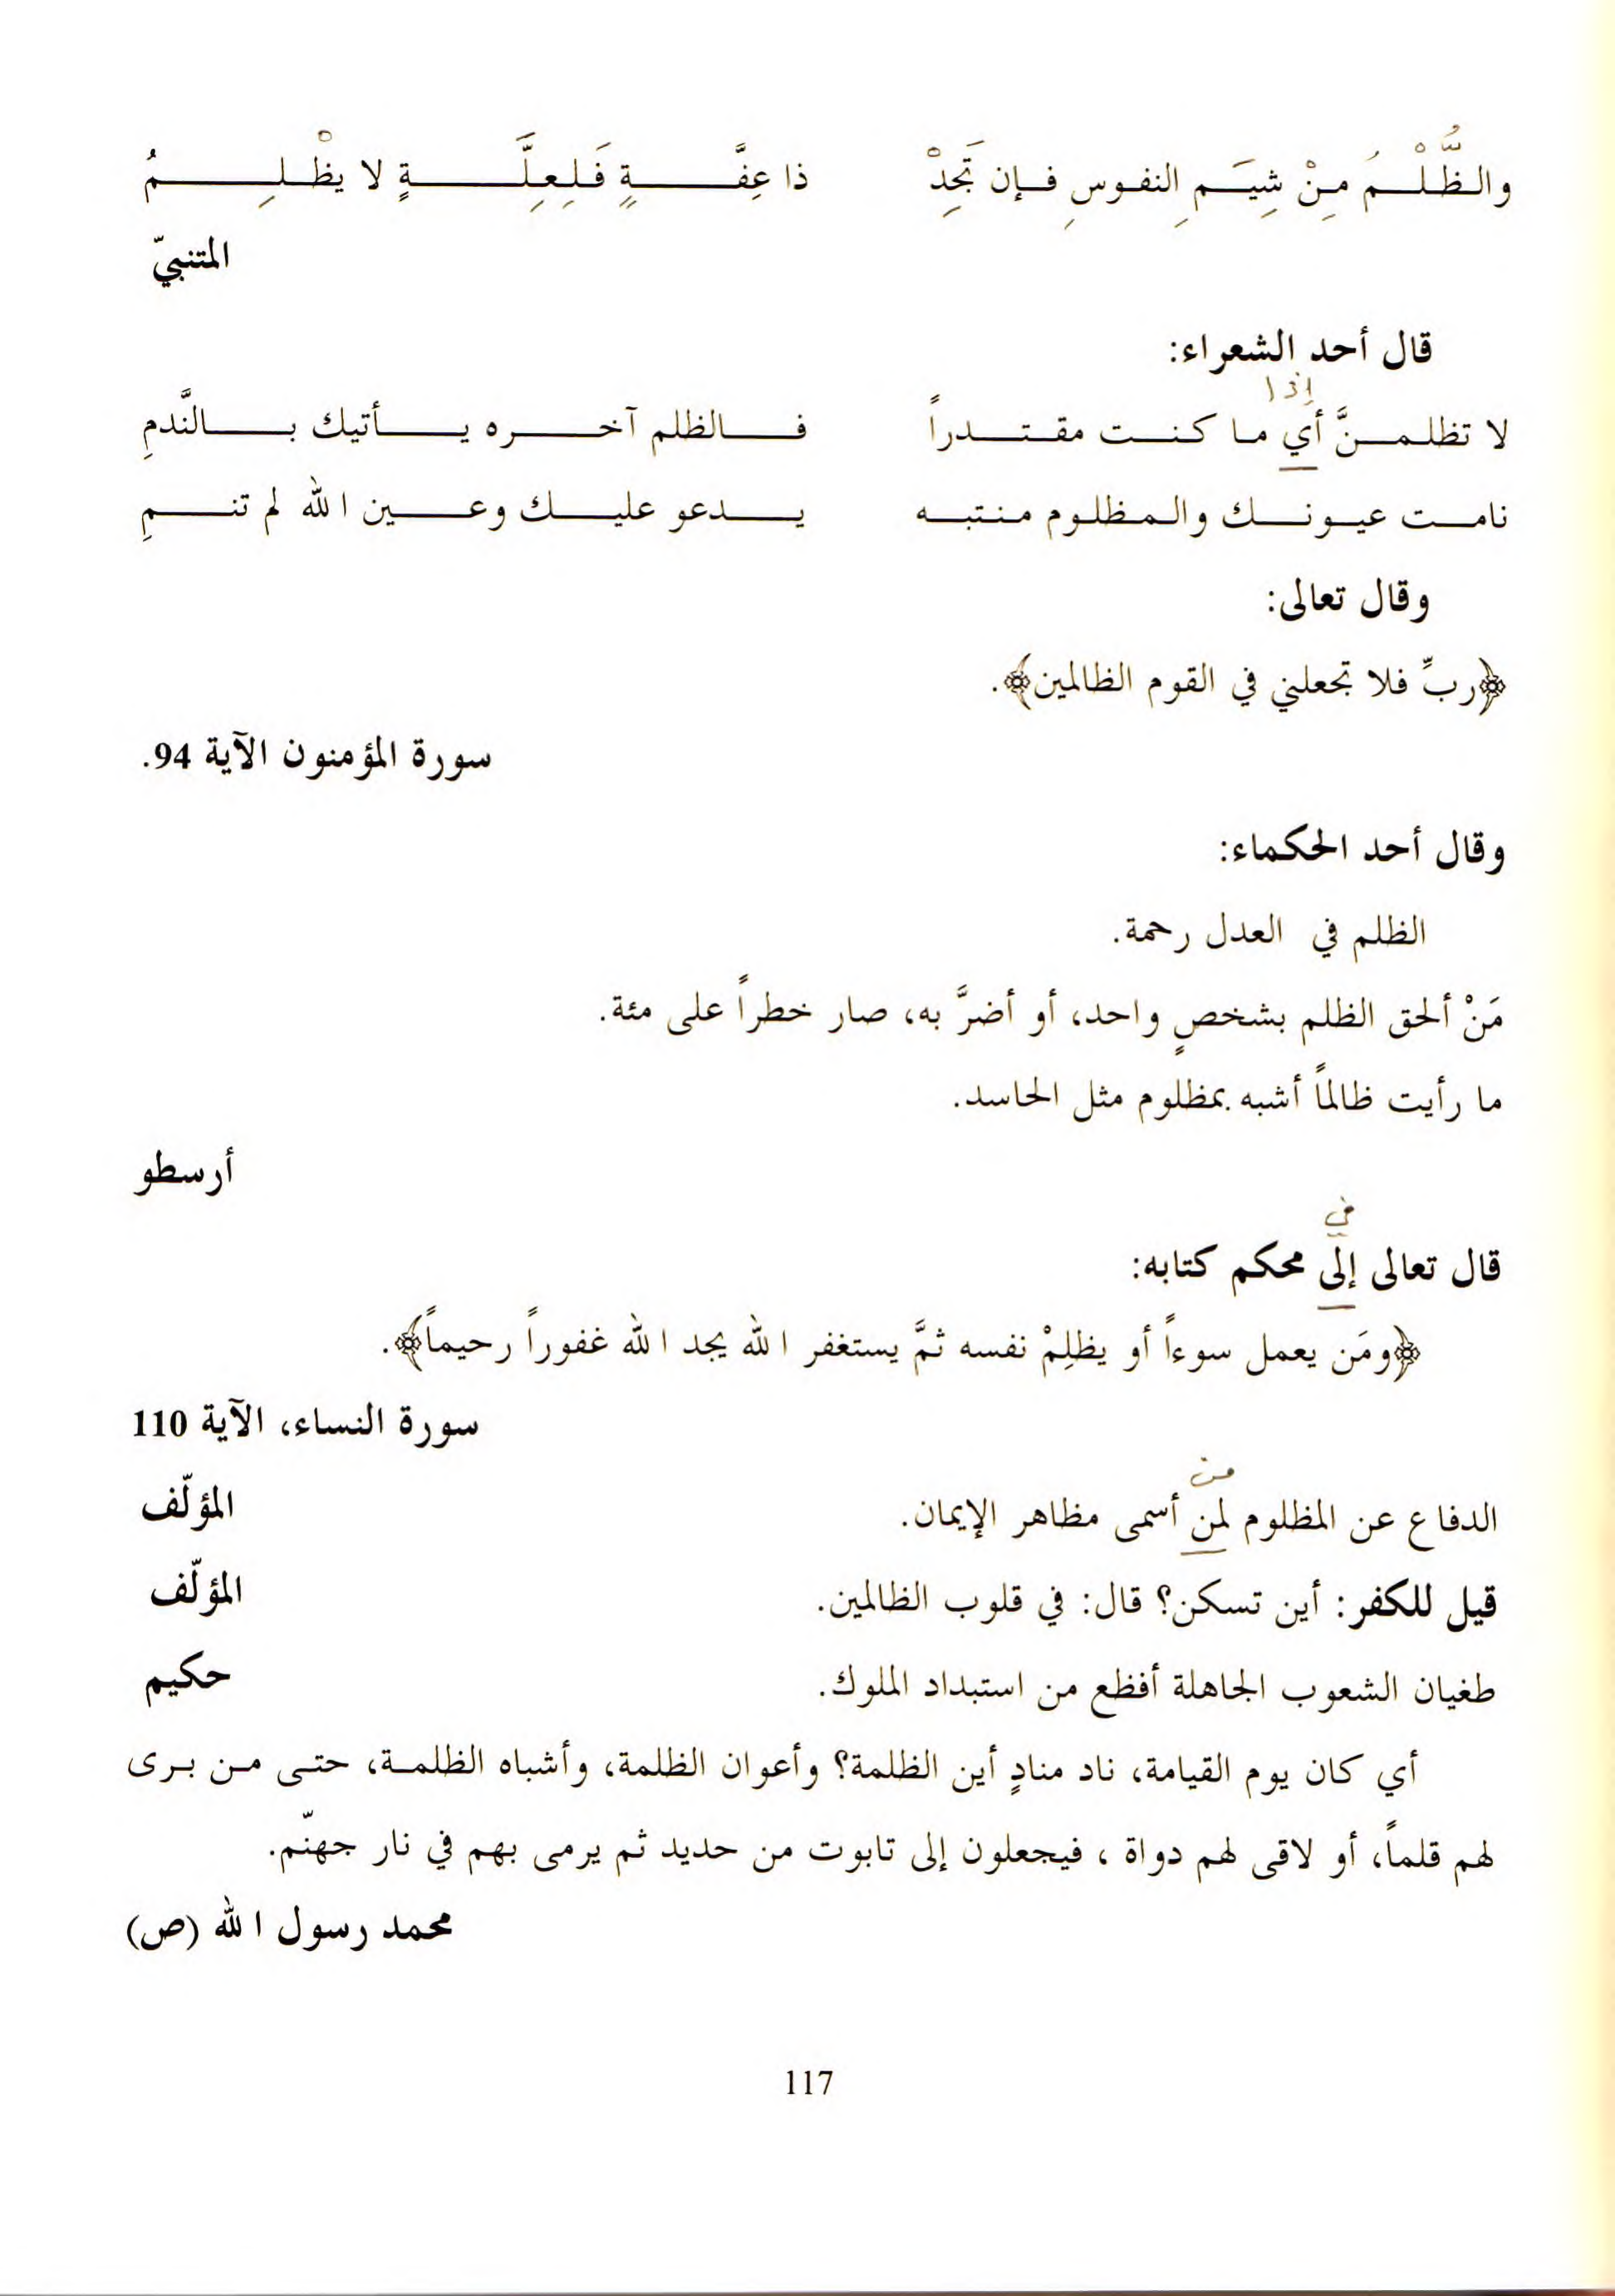 والظُّلْمُ مِنْ شِيَمِ النفوسِ فإن تَجِدْ ذا عِفَّةٍ فَلِعِلَّةٍ لا يظْلِمُ
المتنبيّ
قال أحد الشعراء:
إذا
لا تظلمنَّ أي ما كنت مقتدراً فالظلم آخره يأتيك بالنَّدمِ
نامت عيونك والمظلوم منتبه يدعو عليك وعين الله لم تنمِ
وقال تعالى:
﴿ربِّ فلا تجعلني في القوم الظالمين﴾.
سورة المؤمنون الآية 94.
وقال أحد الحكماء:
الظلم في العدل رحمة.
مَنْ ألحق الظلم بشخصٍ واحد، أو أضرَّ به، صار خطراً على مئة.
ما رأيت ظالماً أشبه بمظلوم مثل الحاسد.
أرسطو
في
قال تعالى إلى محكم كتابه:
﴿ومَن يعمل سوءاً أو يظلِمْ نفسه ثمَّ يستغفر الله يجد الله غفوراً رحيماً﴾.
سورة النساء، الآية 110
من
الدفاع عن المظلوم لمن أسمى مظاهر الإيمان. المؤلّف
قيل للكفر: أين تسكن؟ قال: في قلوب الظالمين. المؤلّف
طغيان الشعوب الجاهلة أفظع من استبداد الملوك. حكيم
أي كان يوم القيامة، ناد منادٍ أين الظلمة؟ وأعوان الظلمة، وأشباه الظلمة، حتى من برى
لهم قلماً، أو لاقى لهم دواة ، فيجعلون إلى تابوت من حديد ثم يرمى بهم في نار جهنّم.
محمد رسول الله (ص)
117